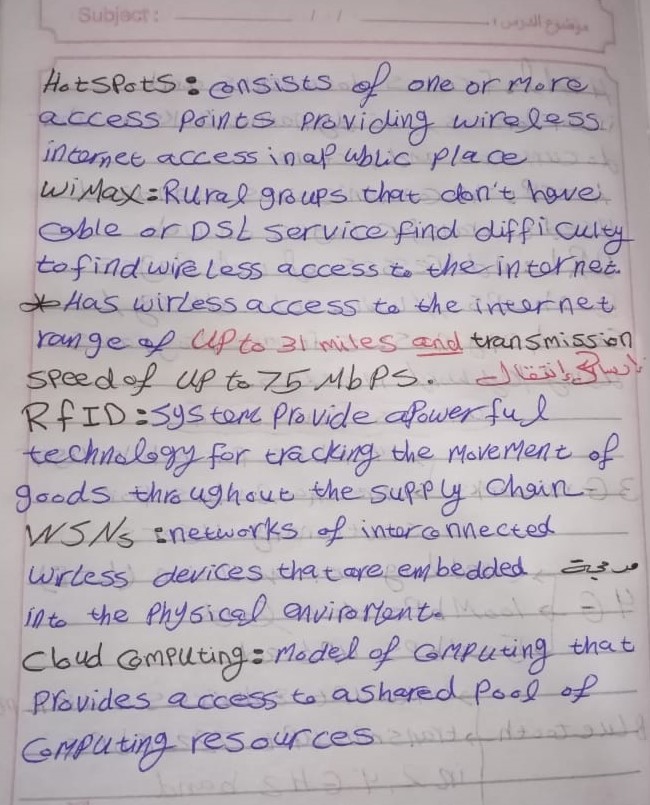 Subject: / /
موضوع الدرس:
Hotspots: consists of one or more
access points providing wireless
internet access in a public place
WiMax: Rural groups that don't have
cable or DSL service find difficulty
to find wireless access to the internet.
* Has wirless access to the internet
range of up to 31 miles and transmission
speed of up to 75 Mbps. إنتقال
RFID: system provide a powerful
technology for tracking the movement of
goods throughout the supply chain
WSNs: networks of interconnected
wirless devices that are embedded مدمجة
into the physical enviroment.
Cloud Computing: Model of computing that
provides access to a shared pool of
computing resources